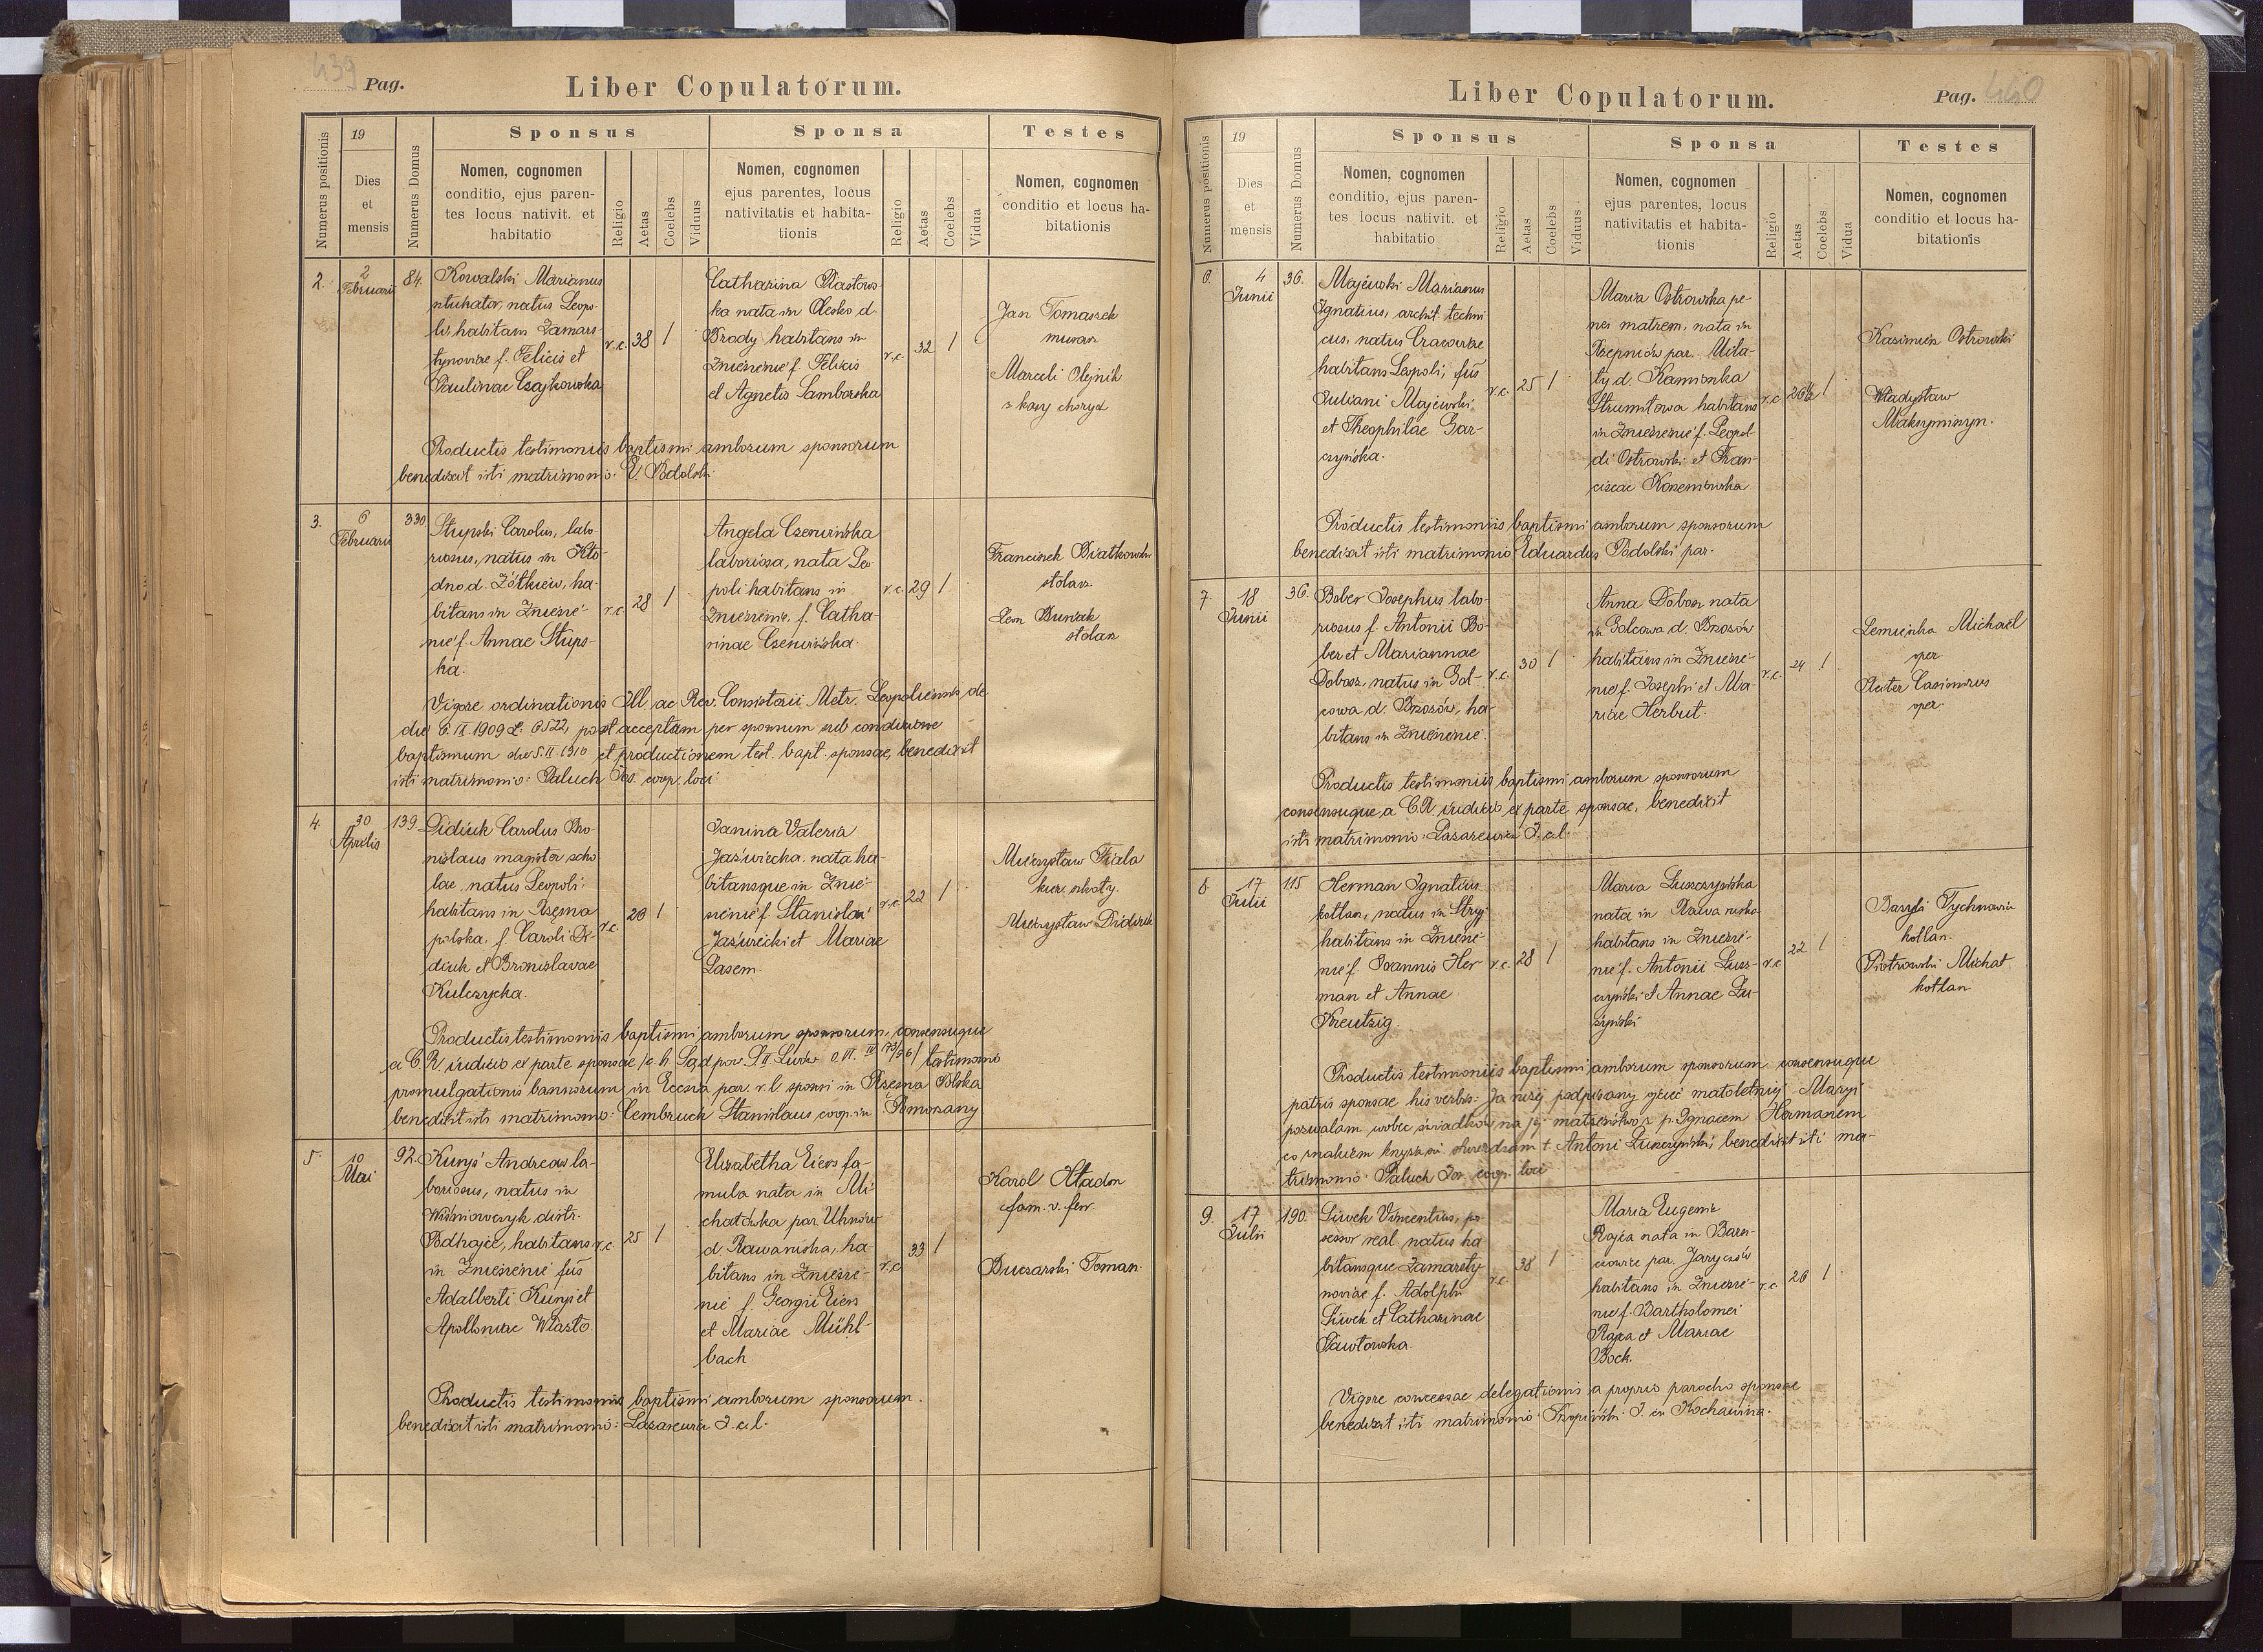 439 Pag.
Liber Copulatorum.
Numerus positionis
19
Dies
et
mensis
Numerus Domus
Sponsus
Nomen, cognomen
conditio, ejus paren-
tes locus nativit. et
habitatio
Religio
Aetas
Coelebs
Viduus
Sponsa
Nomen, cognomen
ejus parentes, locus
nativitatis et habita-
tionis
Religio
Aetas
Coelebs
Vidua
Testes
Nomen, cognomen
conditio et locus ha-
bitationis
2.
2
Februarii
84.
Kowalski Marianus
natus Leopo-
li, habitans Zamars-
tynoviae f. Felicis et
Paulinae Czajkowska
r.c.
38
1
Catharina Piastows-
ka nata in Olesko d.
Brody habitans in
Zniesienie f. Felicis
et Agnetis Samborska
r.c.
32
1
Jan Tomaszek
murarz
Marceli Olejnik
z kasy chorych
Productis testimoniis baptismi amborum sponsorum
benedixit isti matrimonio: E. Podolski
3.
6
Februarii
330.
Stupski Carolus, labo-
riosus, natus in Kło-
dno d. Żółkiew, ha-
bitans in Zniesie-
nie f. Annae Stups-
ka.
r.c.
28
1
Angela Czerwińska
laboriosa, nata Leo-
poli habitans in
Zniesienie, f. Catha-
rinae Czerwińska.
r.c.
29
1
Franciszek Białkowski
stolarz
stolarz
Vigore ordinationis Ill. ac Rev. Consistorii Metr. Leopoliensis de
die 6. IX 1909 L: 6522, post acceptum per sponsum sub conditione
baptismum die 5. II. 1910 et productionem test. bapt. sponsae, benedixit
isti matrimonio: Paluch Jos. coop. loci
4.
30
Aprilis
139.
Didiuk Carolus Bro-
nislaus magister scho-
lae, natus Leopoli,
habitans in Rzęsna
polska, f. Caroli Di-
diuk et Bronislavae
Kulczycka.
r.c.
26
1
Janina Valeria
Jaźwiecka nata ha-
bitansque in Znie-
sienie f. Stanislai
Jaźwiecki et Mariae
Lasem.
r.c.
22
1
Mieczysław Fiala
kier. szkoły.
Mieczysław Didiuk
Productis testimoniis baptismi amborum sponsorum, consensuque
a C.R. iudicio ex parte sponsae testimonio
promulgationis bannorum in Eccsia par. r.l. sponsi in Rzęsna Polska
benedixit isti matrimonio: Cembruch Stanislaus coop. in Pomorzany
5.
10
Mai
92.
Kuryś Andreas la-
boriosus, natus in
Wiśniowczyk distr.
Podhajce, habitans
in Zniesienie fius
Adalberti Kuryś et
Apolloniae Wlasto.
r.c.
25
1
Elisabetha Eiers fa-
mula nata in Mi-
chałówka par Uhnów
d. Rawa ruska, ha-
bitans in Zniesie-
nie f. Georgii Eiers
et Mariae Mühl-
bach.
r.c.
33
1
Karol Hładon
fam. v. ferr.
Buczarski Toman.
Productis testimoniis baptismi amborum sponsorum.
benedixit isti matrimonio: Lazarewicz J. c.l.
Liber Copulatorum.
Pag. 440
Numerus positionis
19
Dies
et
mensis
Numerus Domus
Sponsus
Nomen, cognomen
conditio, ejus paren-
tes locus nativit. et
habitatio
Religio
Aetas
Coelebs
Viduus
Sponsa
Nomen, cognomen
ejus parentes, locus
nativitatis et habita-
tionis
Religio
Aetas
Coelebs
Vidua
Testes
Nomen, cognomen
conditio et locus ha-
bitationis
6.
4
Junii
36.
Majewski Marianus
Ignatius, archit. techni-
cus, natus Cracoviae
habitans Leopoli, fius
Juliani Majewski
et Theophilae Gar-
czyńska.
r.c.
25
1
Maria Ostrowska pe-
nes matrem, nata in
Rzepniów par. Miła-
ty d. Kamionka
Strumiłowa habitans
in Zniesienie f. Leopol-
di Ostrowski et Fran-
ciscae Korzeniowska
r.c.
26½
1
Kasimierz Ostrowski
Władysław
Maksyminzyn.
Productis testimoniis baptismi amborum sponsorum
benedixit isti matrimonio Eduardus Podolski par.
7.
18
Junii
36.
Bober Josephus labo-
riosus f. Antonii Bo-
ber et Mariannae
Dobosz, natus in Gol-
cowa d. Brzozów, ha-
bitans in Zniesienie.
r.c.
30
1
Anna Dobosz nata
in Golcowa d. Brzozów
habitans in Zniesie-
nie f. Josephi et Ma-
riae Herbut.
r.c.
24
1
Michael
oper.
Casimirus
oper.
Productis testimoniis baptismi amborum sponsorum
consensuque a C.R. iudicio ex parte sponsae, benedixit
isti matrimonio: Lazarewicz J. c.l.
8.
17
Julii
115
Herman Ignatius
kotlarz, natus in Stryj
habitans in Zniesie-
nie f. Joannis Her-
man et Annae
Kreutzig.
r.c.
28
1
Maria Luszczyńska
nata in Rawa ruska
habitans in Zniesie-
nie f. Antonii Lusz-
czyński et Annae Lu-
szyński
r.c.
22
1
Bazyli Tychnowicz
kotlarz.
Piotrowski Michał
kotlarz
Productis testimoniis baptismi amborum sponsorum consensuque
patris sponsae his verbis: Ja niżej podpisany ojciec małoletniej Maryi
pozwalam wobec świadków na jej małżeństwo z p. Ignacem Hermanem
co znakiem krzyża św. stwierdzam † Antoni Łuszczyński, benedixit isti ma-
trimonio: Paluch Jos coop. loci
9.
17
Julii
190.
Siwek Vincentius, po-
sessor real. natus ha-
bitansque Zamarsty-
noviae f. Adolphi
Siwek et Catharinae
Pawłowska.
r.c.
38
1
Maria Eugenia
Rajca nata in
par. Jaryczów
habitans in Zniesie-
nie f. Bartholomei
Rajca et Mariae
Bock.
r.c.
26
1
Vigore concessae delegationis a proprio parocho sponsae
benedixit isti matrimonio J. ex Kochawina.